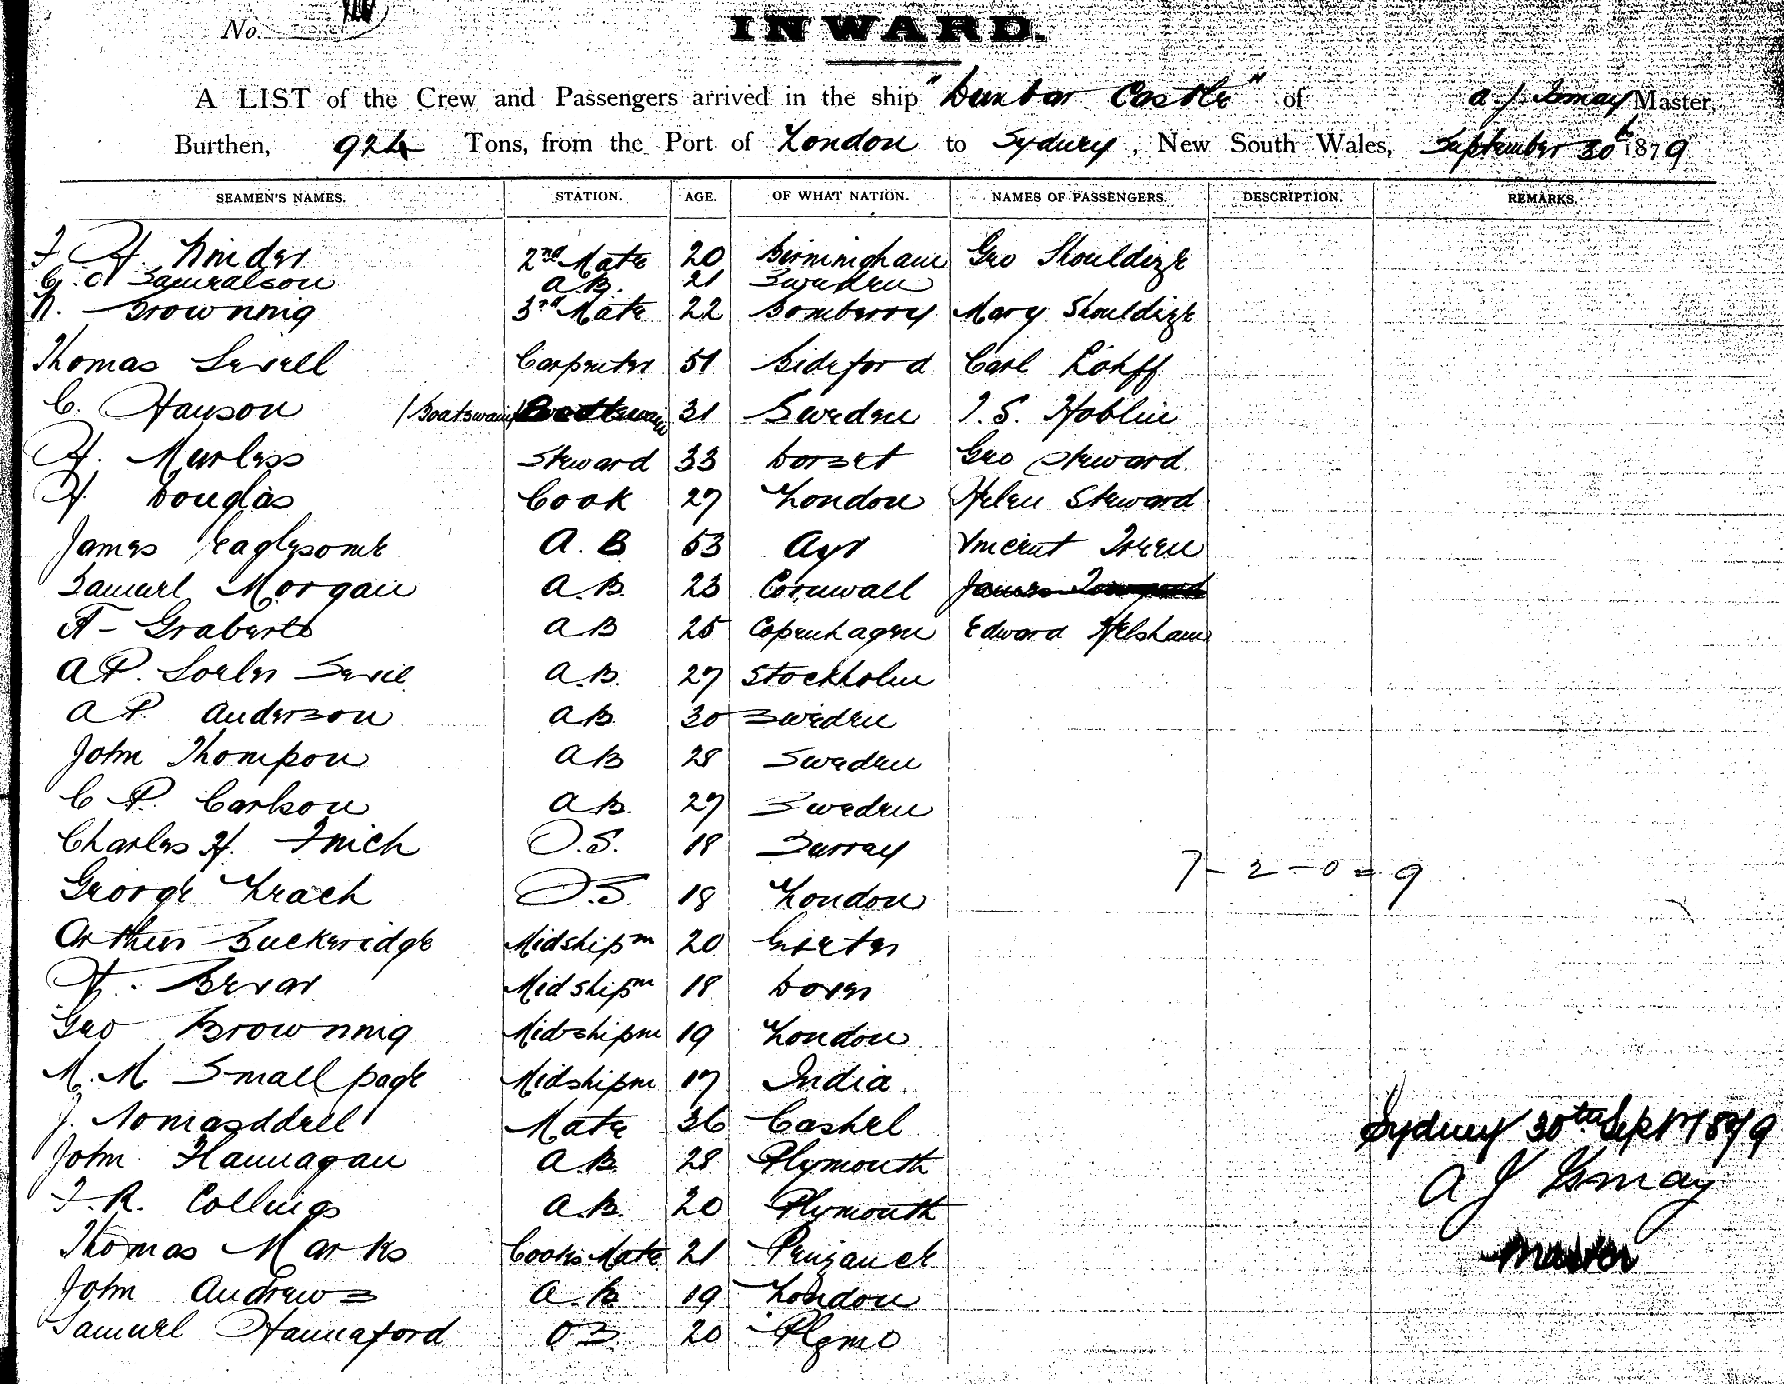 No.
INWARD.
A LIST of the Crew and Passengers arrived in the ship "Dunbar Castle" of A J Ismay Master,
Burthen, 924 Tons, from the Port of London to Sydney, New South Wales, September 30th 1879
SEAMEN'S NAMES. STATION. AGE. OF WHAT NATION. NAMES OF PASSENGERS. DESCRIPTION. REMARKS.
F H Kinder 2nd Mate 20 Birmingham Geo Shouldize
G. A Samuelson A.B. 21 Sweden
Browning 3rd Mate 22 Mary Shouldize
Thomas Sewell Carpenter 51 Bideford Carl
C. Hanson (Boatswain) 31 Sweden I. S. Hoblin
H. Murless Steward 33 Dorset Geo Steward
H. Douglas Cook 27 London Helen Steward
James Eaglesome A. B 53 Ayr Vincent
Samuel Morgan A.B. 23 Cornwall James
A B 25 Copenhagen Edward Helsham
A P. A.B. 27 Stockholm
A P. Anderson A B 30 Sweden
John Thompson A B 28 Sweden
C P. Carlson A B 27 Sweden
Charles H. Finch O.S. 18 Surray
George Leach O.S 18 London
Arthur Buckeridge Midshipm 20 Exeter
H. Bevar Midshipm 18 Dover
Geo Browning Midshipm 19 London
M. M Smallpage Midshipm 17 India.
J. Mate 36 Cashel
John Flannagan A B. 28 Plymouth
F. R. Collings A.B. 20 Plymouth
Thomas Marks Cooks Mate 21 Penzance
John Andrews A.B 19 London
Samuel Hannaford O S. 20 Plymo
7 - 2 - 0 = 9
Sydney 30th Sept 1879
A J Ismay
Master